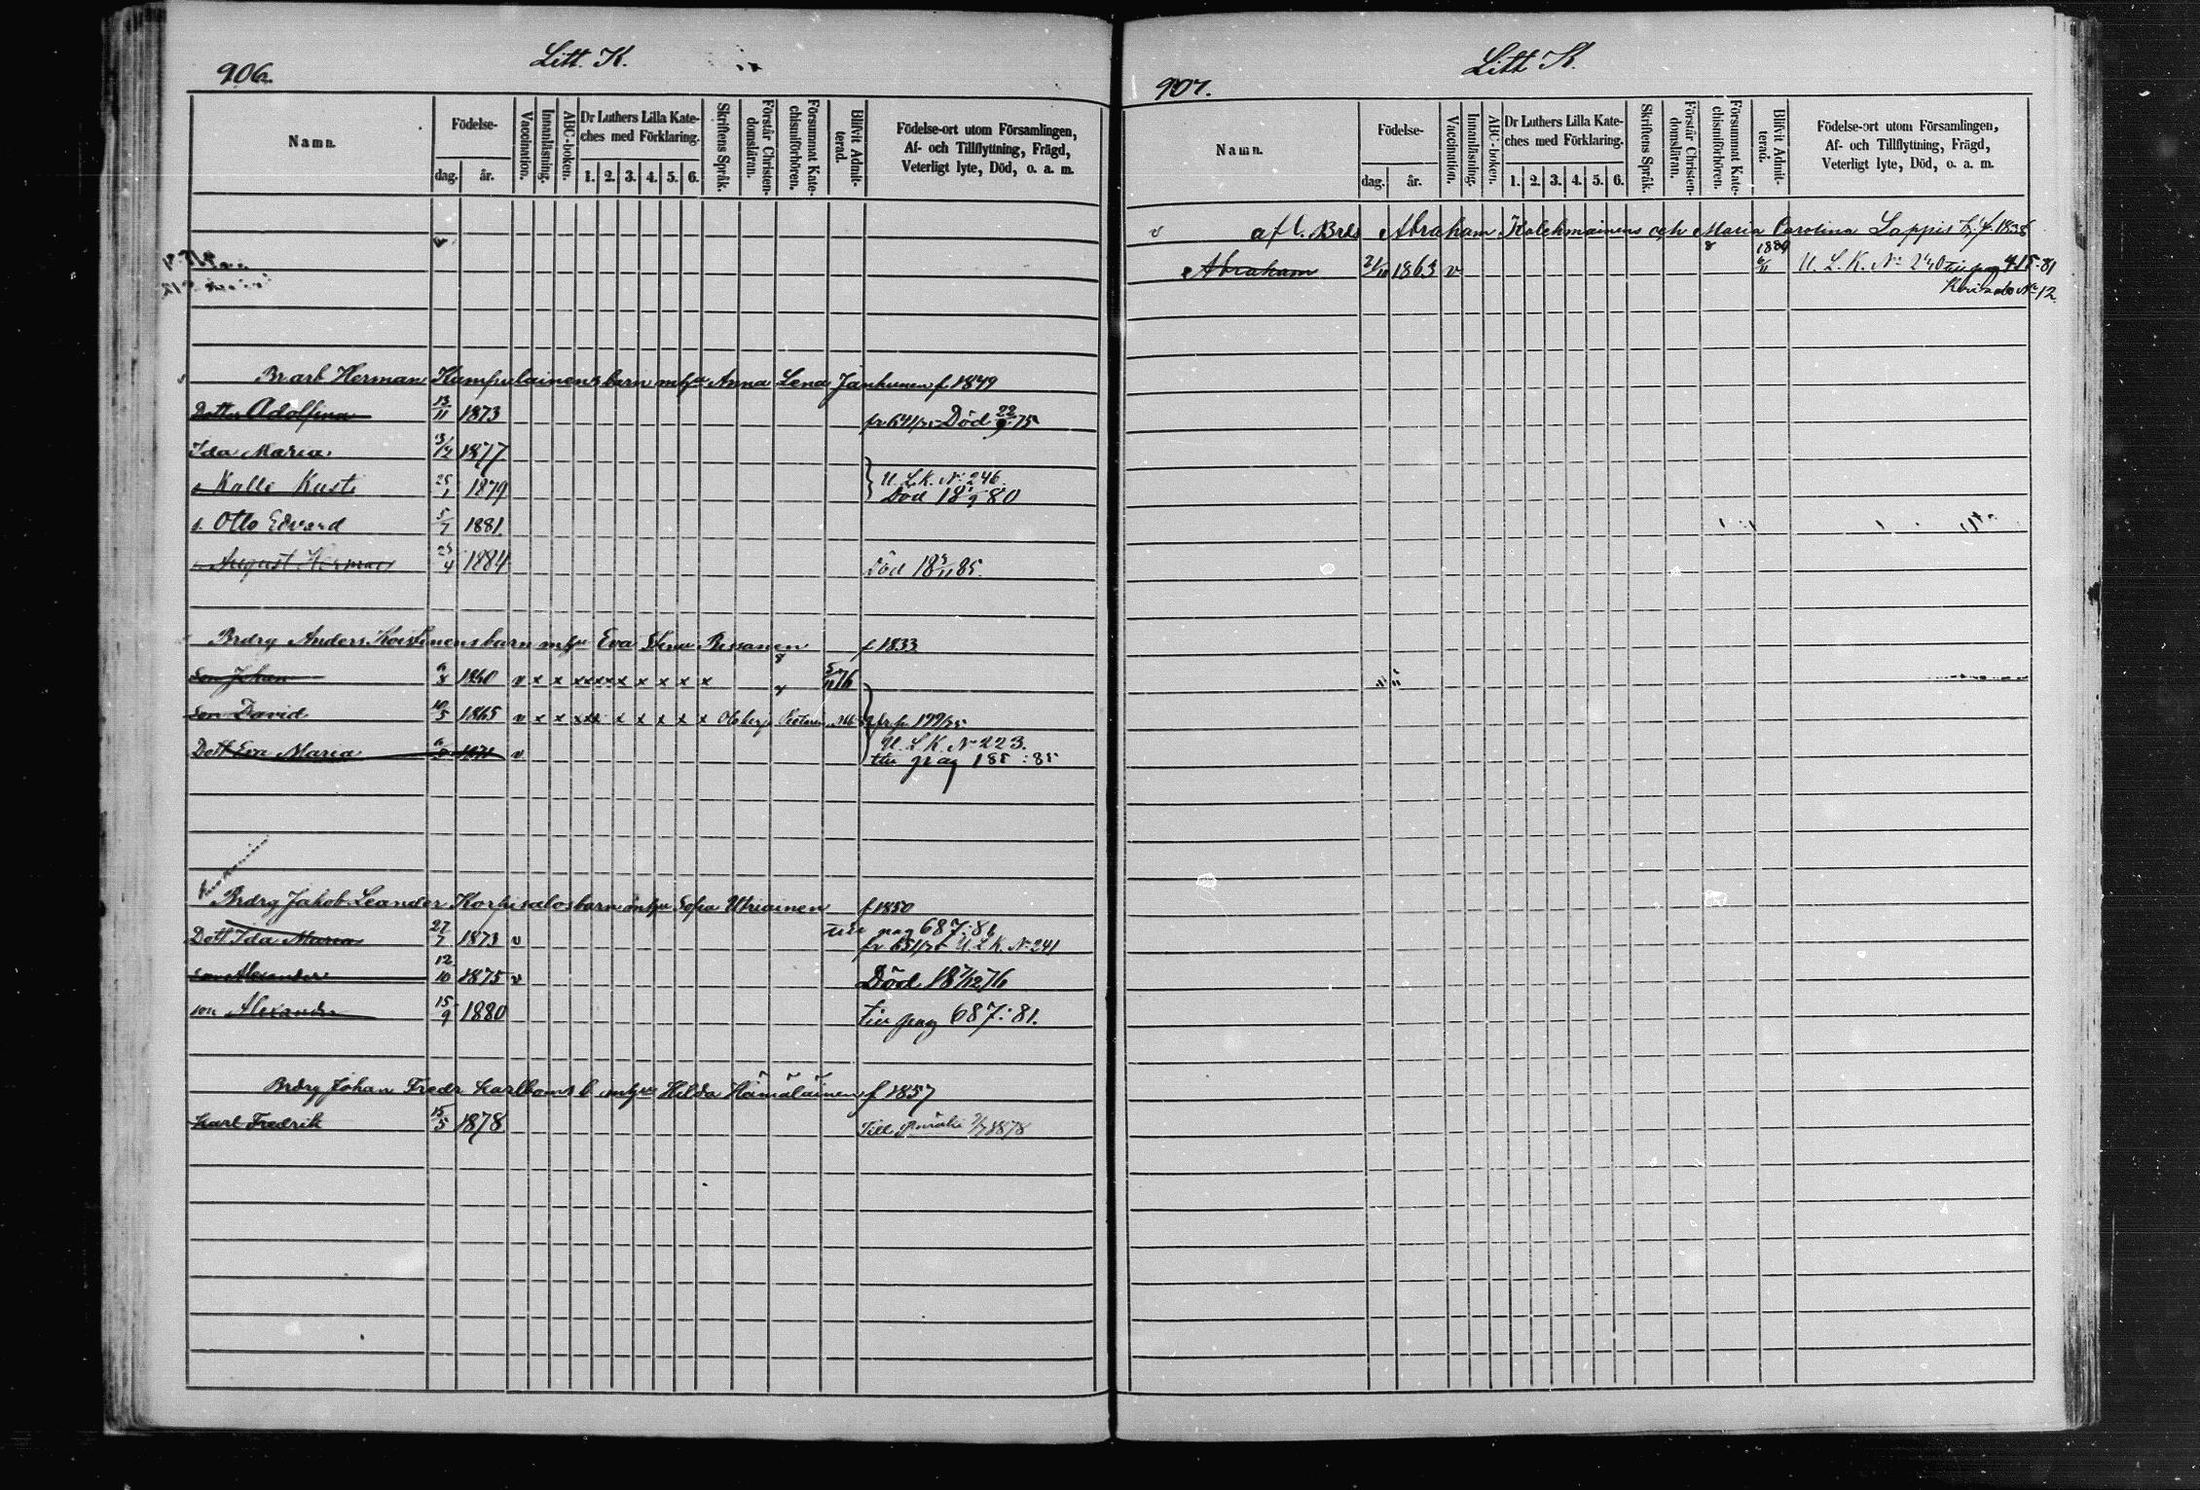 906.
Litt. K.
Namn.
Födelse-
dag.
år.
Vaccination.
Innanläsning.
ABC-boken.
Dr Luthers Lilla Kate-
ches med Förklaring.
1. 2. 3. 4. 5. 6.
Skriftens Språk.
Förstår Christen-
domsläran.
Försummat Kate-
chismiförhören.
Blifvit Admit-
terad.
Födelse-ort utom Församlingen,
Af- och Tillflyttning, Frägd,
Veterligt lyte, Död, o. a. m.
v
Br arb Herman Kumpulainens barn m hu Anna Lena Janhunen f. 1849
Dotter Adolfina 13/11 1873 fr 641/75 Död 22/9 75
Ida Maria 3/2 1877
s Kalle Kusti 25/1 1879 U. L. K. No 246.
Död 18 80
s. Otto Edvard 5/7 1881.
August Herman 25/4 1884 Död 18 85.
Brdrg Anders Koistinens barn m hu Eva Stina Rissanen f 1833
Son Johan 1860 v x x x x x x x x x x x x 5/11 76
Son David 10/5 1865 v x x x x x x x x x x fr p 199/75
U. L. K. No 223.
Dott Eva Maria v till pag 185:85
Brdrg Jakob Leander Korpisalos barn m hu Sofia Utriainen f 1850
till pag 687:81
Dott Ida Maria 27/7 1873 v fr 651/75 U. L. K. No 241
son Alexander 12/10 1875 v Död 18 7/12 76
son Alexander 15/9 1880 till pag 687:81.
Brdrg Johan Fredr Karlboms b m hu Hilda Hämäläinen f 1857
Karl Fredrik 15/5 1878 Till 1878
907.
Litt K.
Namn.
Födelse-
dag.
år.
Vaccination.
Innanläsning.
ABC-boken.
Dr Luthers Lilla Kate-
ches med Förklaring.
1. 2. 3. 4. 5. 6.
Skriftens Språk.
Förstår Christen-
domsläran.
Försummat Kate-
chismiförhören.
Blifvit Admit-
terad.
Födelse-ort utom Församlingen,
Af- och Tillflyttning, Frägd,
Veterligt lyte, Död, o. a. m.
v afl. Brds Abraham Kolehmainens och Maria Carolina Lappis f. 1838
Abraham 21/10 1863 v 1880 U. L. K. No 240 till pag 415-81
No 12